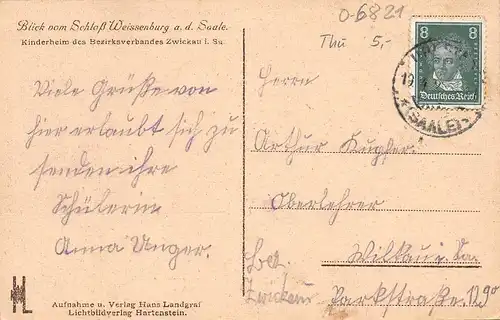 Blick vom Schloß Weissenburg a. d. Saale.
Kinderheim des Bezirksverbandes Zwickau i. Sa.
0-6821
Thü 5,-
8 8
Deutsches Reich
(SAALE)
Viele Grüße von
hier erlaubt sich zu
senden ihre
Schülerin
Anna Unger.
Herrn
Arthur Kupfer.
Oberlehrer
Wilkau i. Sa.
Bez.
Zwickau
Parkstraße
HL
Aufnahme u. Verlag Hans Landgraf
Lichtbildverlag Hartenstein.